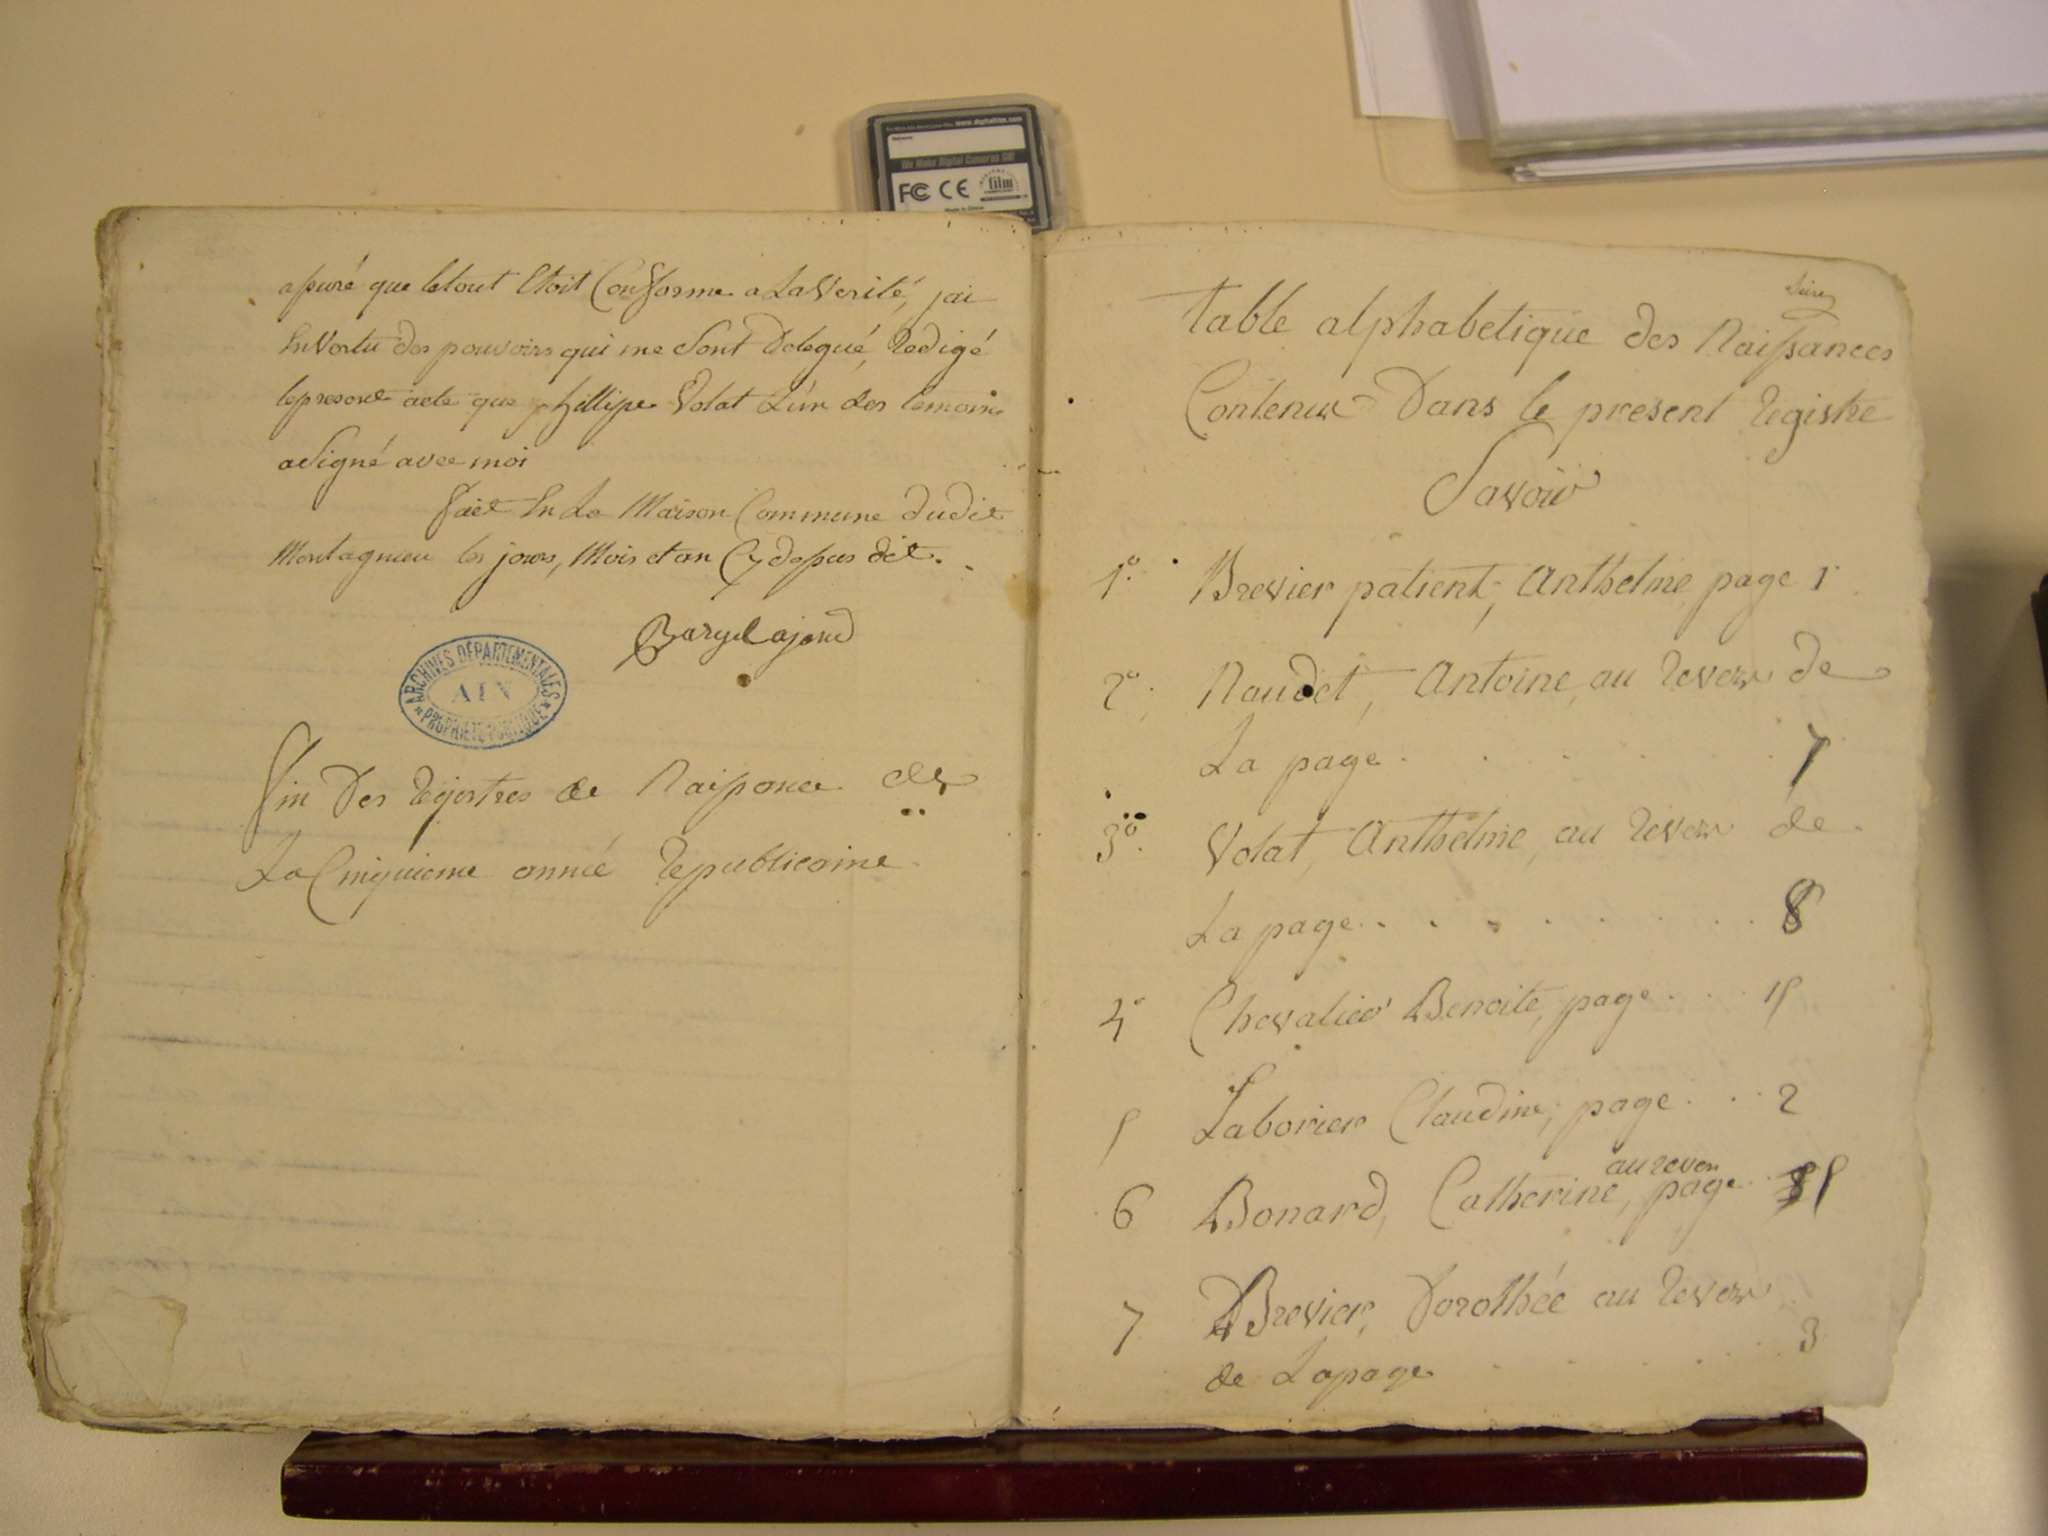 www.digitalfilm.com
We Make Digital Cameras GO!
FC CE film
apuré que letout Etoit Conforme a LaVerité, jai
EnVertu des pouvoirs qui me Sont Delegué, Redigé
lepresent acte que phillipe Volat L'un des temoins
aSigné avec moi
fait En La Maison Commune dudit
Montagnieu les jours, Mois et an Cydessus dit.
ARCHIVES DÉPARTEMENTALES
AIN
PROPRIÉTÉ PUBLIQUE
fin Des Registres de Naissance de
La Cinquieme année Republicaine
table alphabetique des Naissances
Contenus Dans le present Registre
Savoir
1º. Brevier patient, Anthelme page 1
2º. Naudet, Antoine, au Revers de
La page . . . . . . 7
3º. Volat, Anthelme, au Revers de
La page . . . . . . . 8
4º Chevalier Benoite, page . . . 15
5 Laborier Claudine, page . . . 2
au revers
6 Bonard, Catherine, page 5
7 Brevier, Dorothée au Revers
de Lapage . . . . . 3